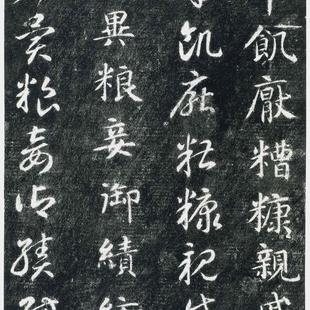 飢厭糟糠親戚
飢厭糟糠親戚
異粮妾御績紡
異粮妾御績紡